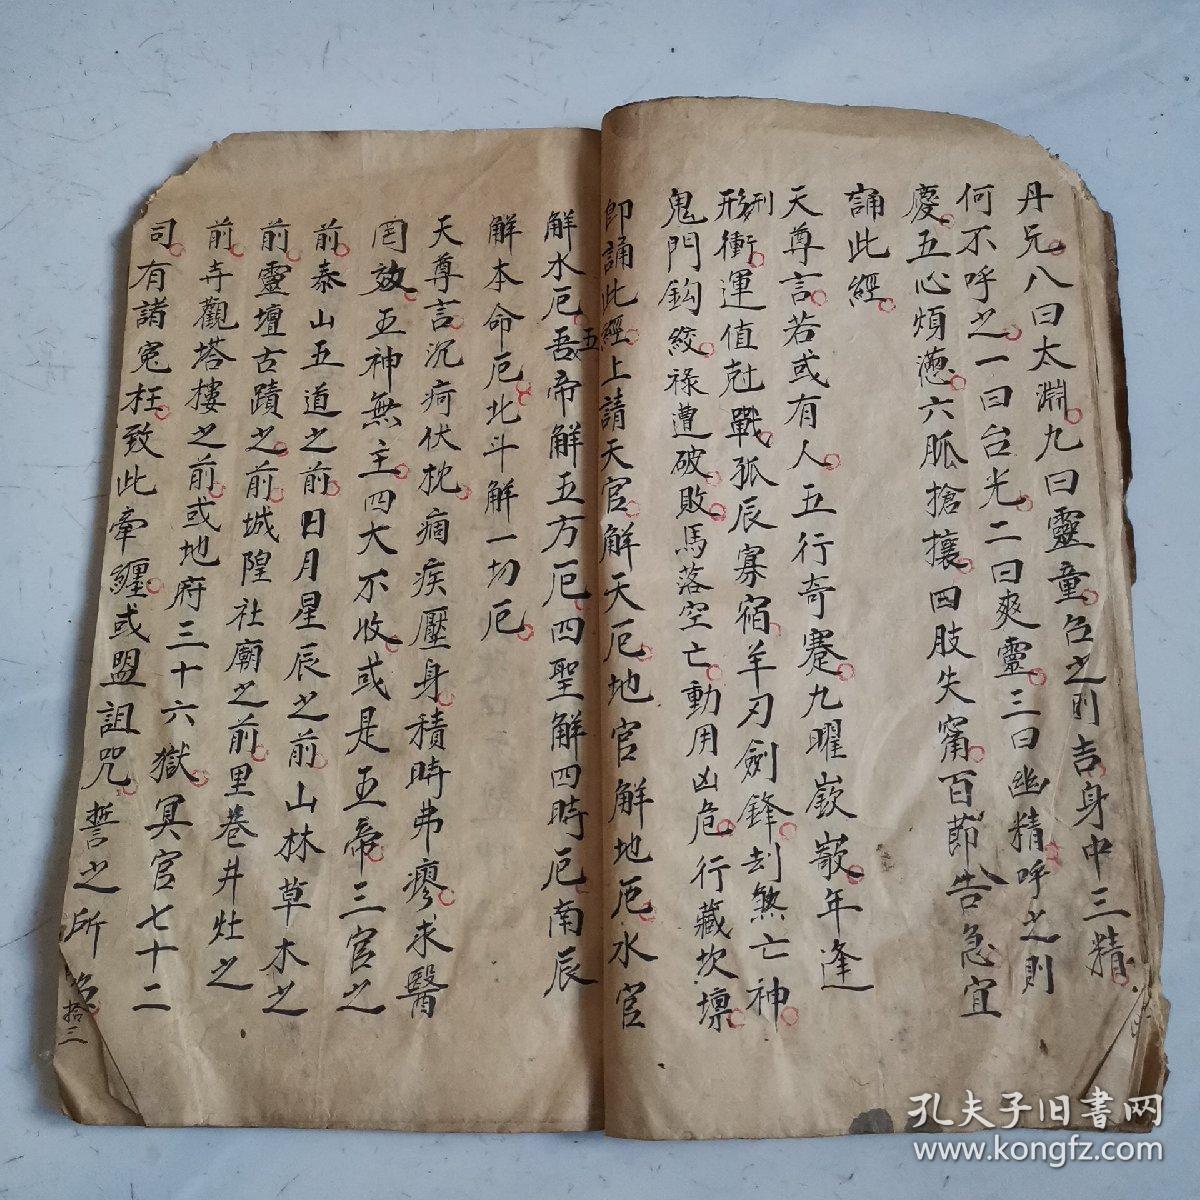 丹元八曰太淵九曰靈童名之則吉身中三精
何不呼之一曰台光二曰爽靈三曰幽精呼之則
慶五心煩懣六脈搶攘四肢失甯百節告急宜
誦此經
天尊言若或有人五行奇蹇九曜嶔嶔年逢
刑衝運值尅戰孤辰寡宿羊刃劍鋒刼煞亡神
鬼門鈎絞祿遭破敗馬落空亡動用凶危行藏坎壈
卽誦此經上請天官解天厄地官解地厄水官
解水厄五帝解五方厄四聖解四時厄南辰
解本命厄北斗解一切厄
天尊言沉疴伏枕痼疾壓身積時弗瘳求醫
罔效五神無主四大不收或是五帝三官之
前泰山五道之前日月星辰之前山林草木之
前靈壇古蹟之前城隍社廟之前里巷井灶之
前寺觀塔樓之前或地府三十六獄冥官七十二
司有諸寃枉致此牽纏或盟詛咒誓之所
拾三
孔夫子旧書网
www.kongfz.com